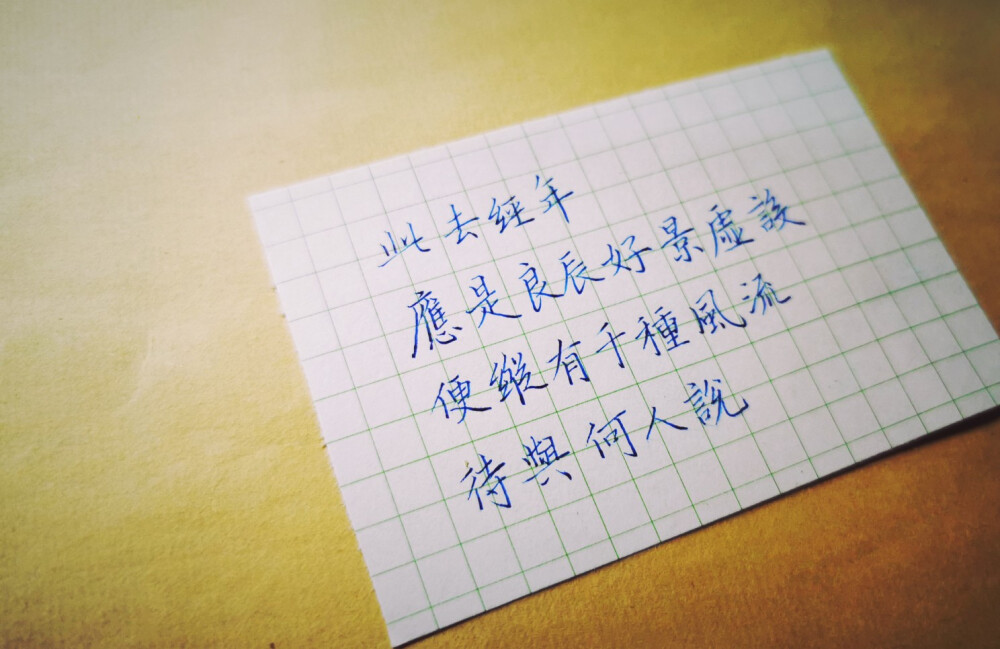 此去經年
應是良辰好景虛設
便縱有千種風流
待與何人說